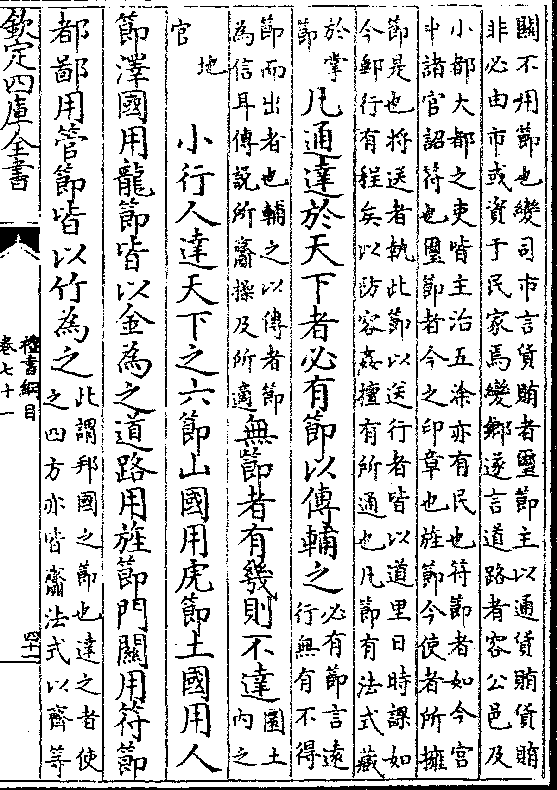 關不用節也變司市言貨賄者璽節主以通貨賄貨賄
非必由市或資于民家焉變鄉遂言道路者容公邑及
小都大都之吏皆主治五涂亦有民也符節者如今宮
中諸官詔符也璽節者今之印章也旌節今使者所擁
節是也將送者執此節以送行者皆以道里日時課如
今郵行有程矣以防容姦擅有所通也凡節有法式藏
於掌
節
凡通達於天下者必有節以傳輔之
必有節言遠
行無有不得
節而出者也輔之以傳者節
為信耳傳說所齎操及所適
無節者有幾則不達
圜土
內之
地
官
小行人達天下之六節山國用虎節土國用人
節澤國用龍節皆以金為之道路用旌節門關用符節
都鄙用管節皆以竹為之
此謂邦國之節也達之者使
之四方亦皆齎法式以齊等
欽定四庫全書
禮書綱目
卷七十一
四十一